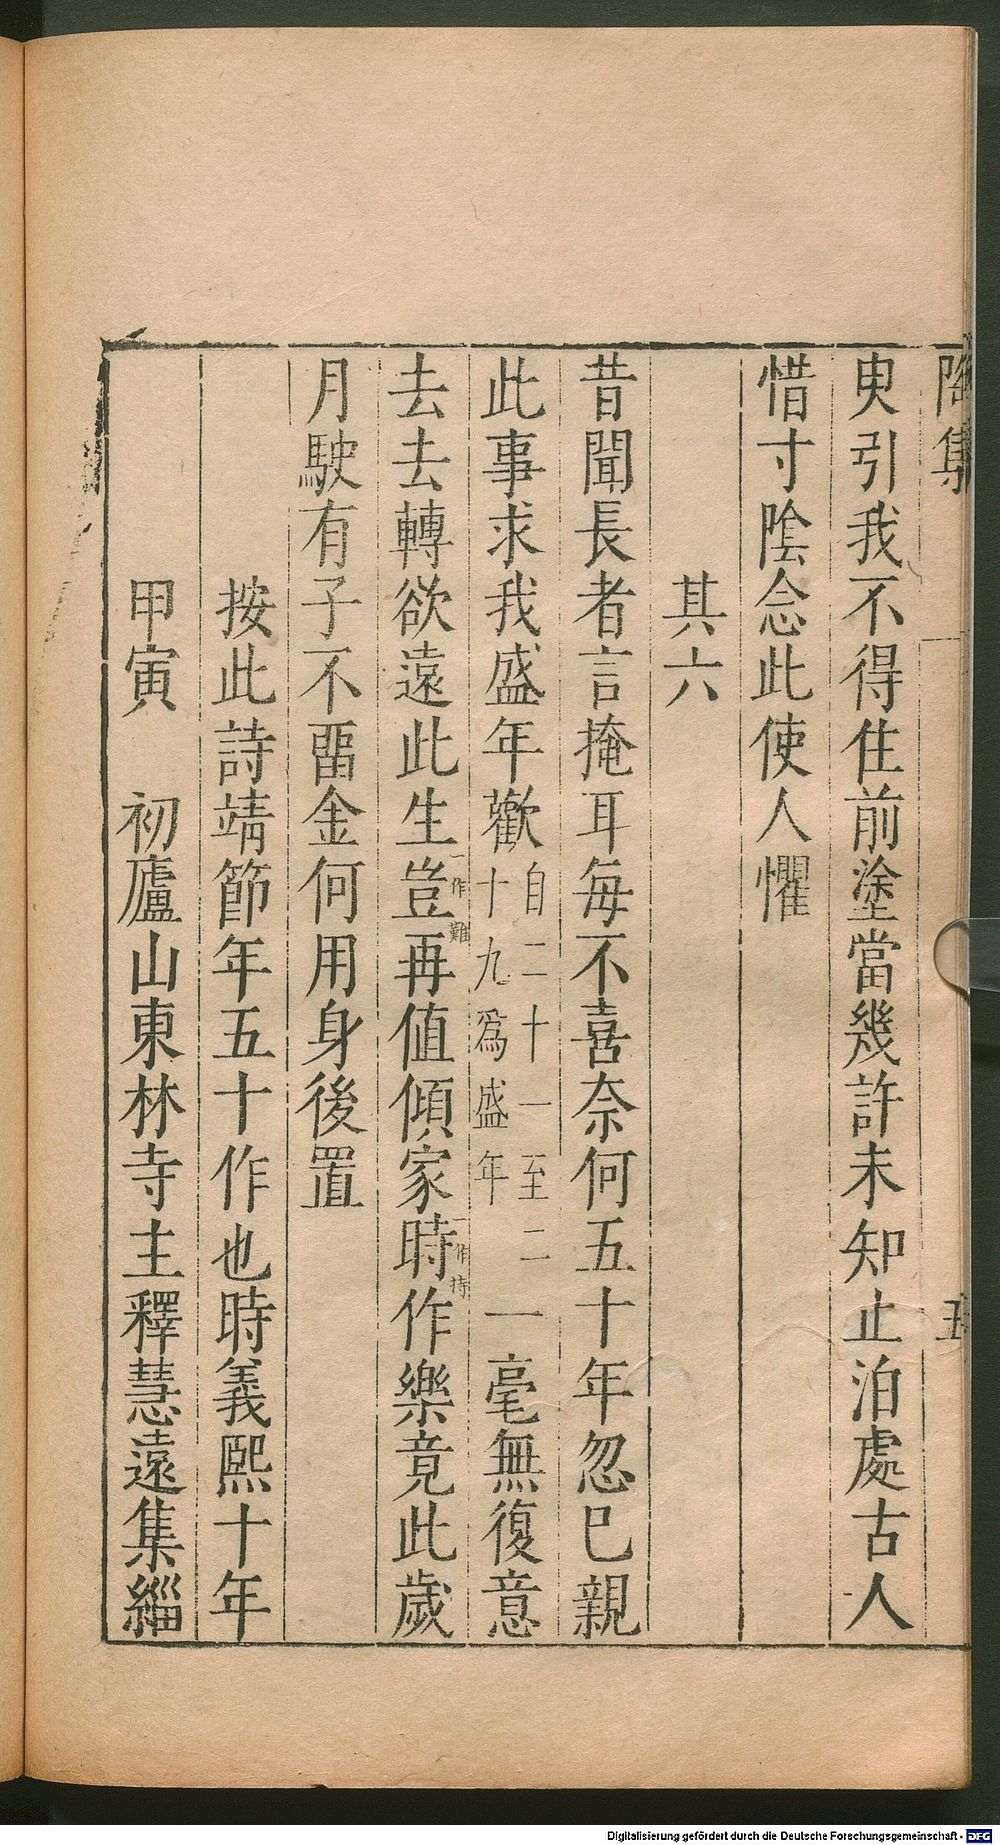 陶集
五
臾引我不得住前塗當幾許未知止泊處古人
惜寸陰念此使人懼
其六
昔聞長者言掩耳每不喜奈何五十年忽已親
此事求我盛年歡自二十一至二十九爲盛年一毫無復意
去去轉欲遠此生豈一作難再值傾家時一作持作樂竟此歲
月駛有子不畱金何用身後置
按此詩靖節年五十作也時義熙十年
甲寅 初廬山東林寺主釋慧遠集緇
Digitalisierung gefördert durch die Deutsche Forschungsgemeinschaft - DFG